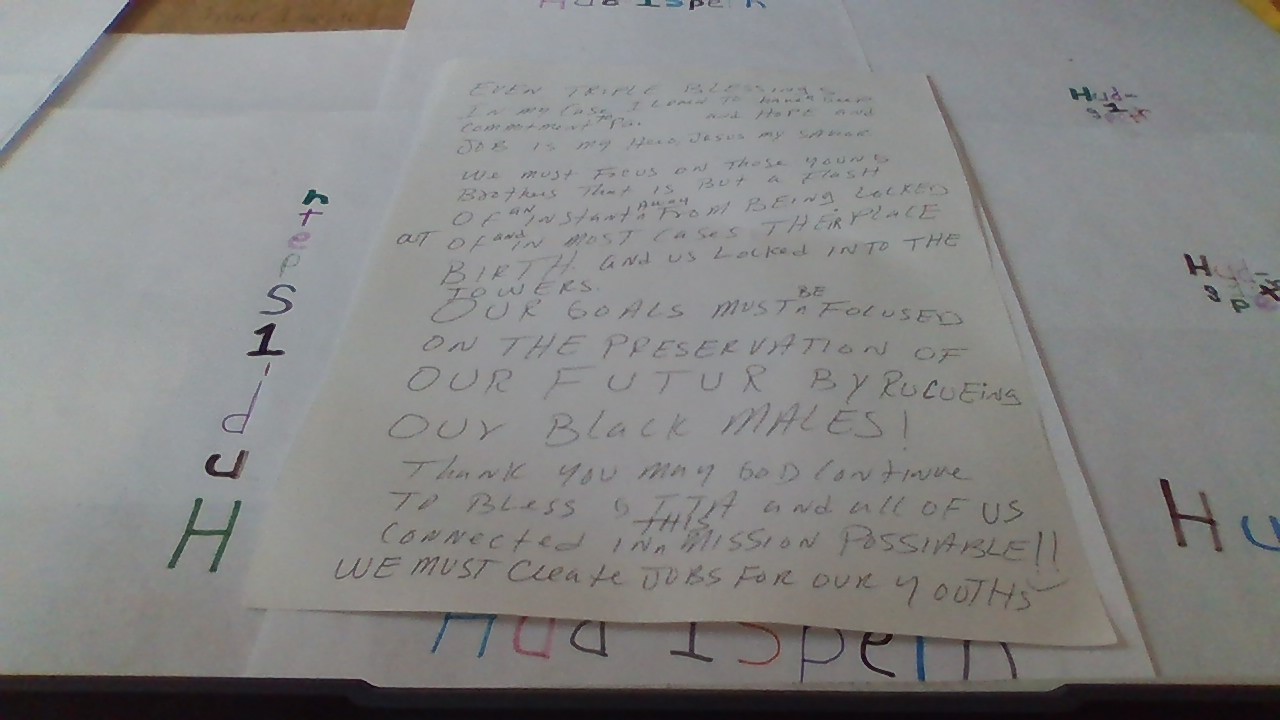 EVEN TRIPLE BLESSINGS
IN my CASE I LEARN TO
COMMITMENT TO and HOPE and
JOB IS my Hero, Jesus my
WE must Focus on Those YOUNG
Brothers That is But a FLASH
OF an INStant Away From BEING LOCKED
at OF and IN MOST CASES THEIR PLACE
BIRTH. and us Locked INTO THE
TOWERS.
OUR GOALS MUST BE FOCUSED
ON THE PRESERVATION OF
OUR FUTUR BY RUCUEing
OUr Black MALES!
Thank you may GOD Continue
TO Bless and all OF US
Connected IN THIS MISSION POSSIABLE!!
WE MUST Create JOBS FOR OUR YOUTHS
Hud-1Speth
Hud
1
H
Hu
Hud 1Spe